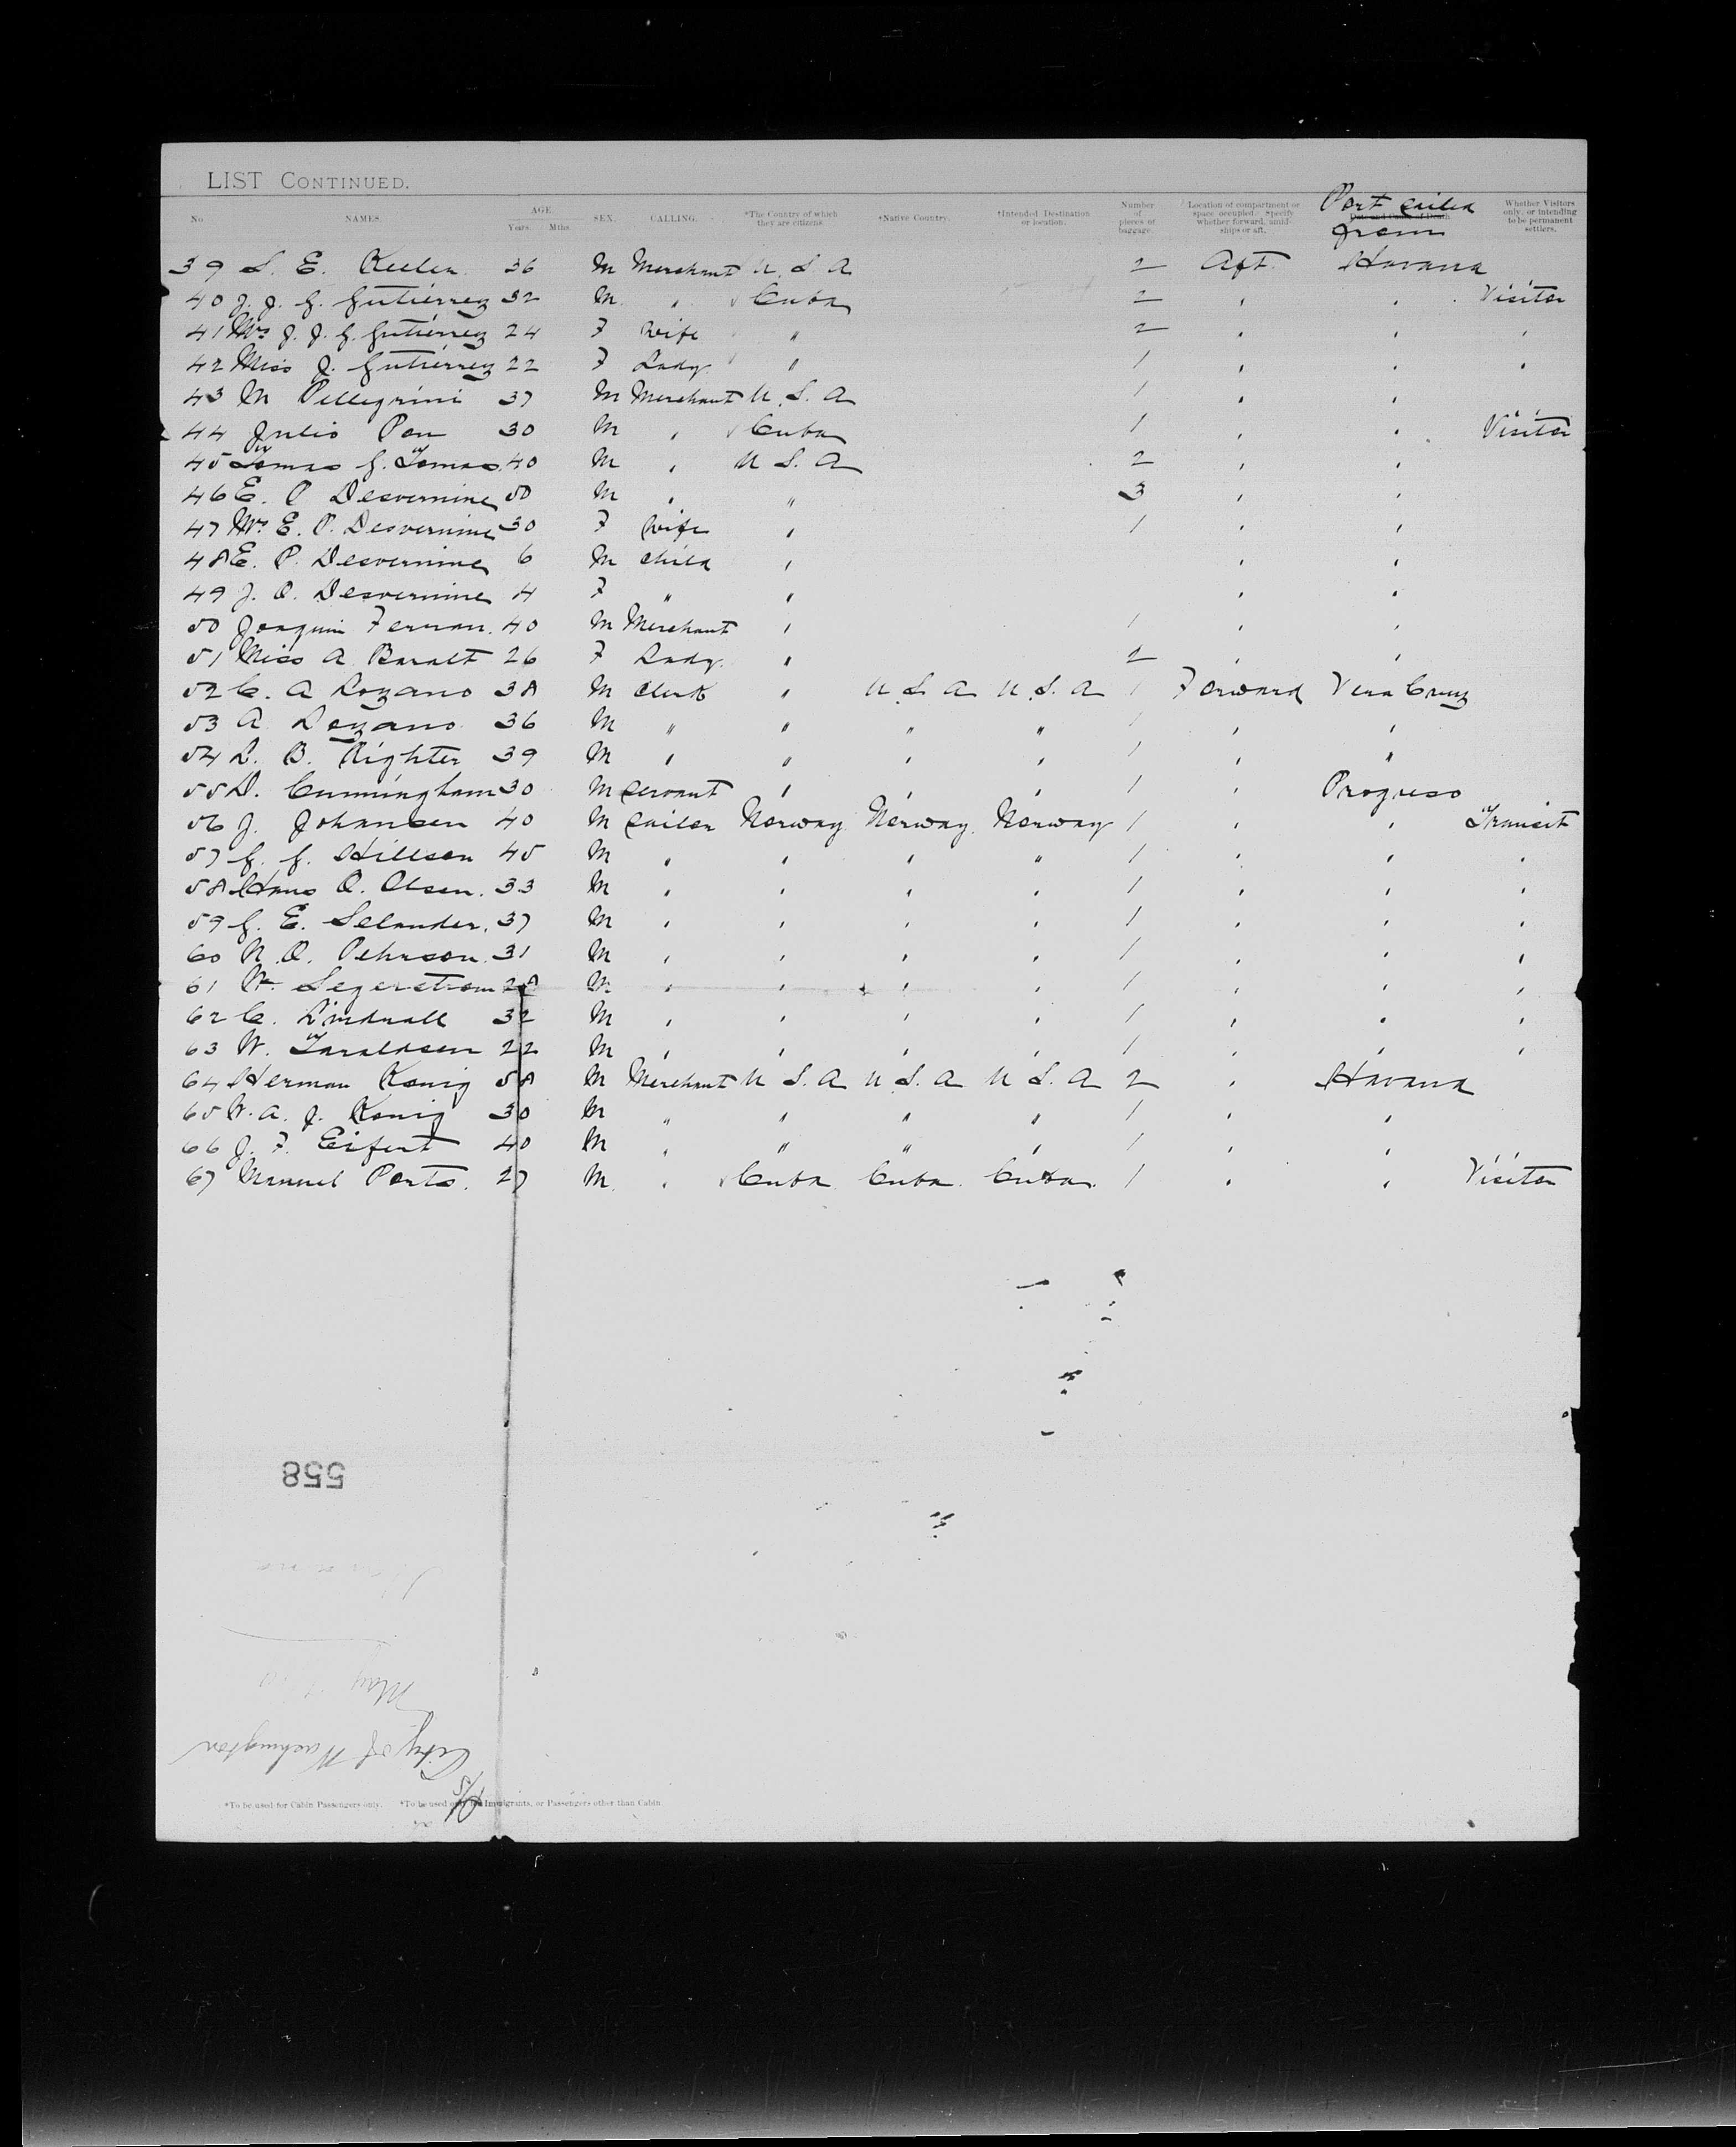 LIST CONTINUED.
No. NAMES. AGE. Years. Mths. SEX. CALLING. *The Country of which they are citizens. †Native Country. †Intended Destination or location. Number of pieces of baggage. Location of compartment or space occupied. Specify whether forward, amidships or aft. Date and Cause of Death. Port sailed from Whether Visitors only, or intending to be permanent settlers.
39 S. E. Keeler 36 M Merchant U.S.A 2 Aft Havana
40 J. J. G. Gutiérrez 32 M " Cuba 2 " " Visitor
41 Mrs J. J. G. Gutiérrez 24 F Wife " 2 " " "
42 Miss J. Gutiérrez 22 F Lady " 1 " " "
43 M Pellegrini 37 M Merchant U.S.A 1 " "
44 Julio Pou 30 M " Cuba 1 " " Visitor
45 Tomas G. Tomas 40 M " U.S.A 2 " "
46 E. P Desvernine 50 M " " 3 " "
47 Mrs E. P. Desvernine 30 F Wife " 1 " "
48 E. P. Desvernine 6 M Child " " "
49 J. O. Desvernine 4 F " " " "
50 Joaquin Ferran. 40 M Merchant " 1 " "
51 Miss A Baralt 26 F Lady " 2 " "
52 C. A Lozano 38 M Clerk " U.S.A U.S.A 1 Forward Vera Cruz
53 A Lozano 36 M " " " " 1 " "
54 L. B. Righter 39 M " " " " 1 " "
55 D. Cunningham 30 M Servant " " " 1 " Progreso
56 J. Johansen 40 M Sailor Norway Norway Norway 1 " " Transit
57 G. G. Hillson 45 M " " " " 1 " " "
58 Hans O. Olsen. 33 M " " " " 1 " " "
59 G. E. Selander. 37 M " " " " 1 " " "
60 N. O. Pehrson. 31 M " " " " 1 " " "
61 W. Segerstrom 28 M " " " " 1 " " "
62 C. Lindvall 32 M " " " " 1 " " "
63 W. Taraldsen 22 M " " " " 1 " " "
64 Herman Konig 58 M Merchant U.S.A U.S.A U.S.A 2 " Havana
65 W. A. J. Konig 30 M " " " " 1 " "
66 J. F. Eifert 40 M " " " " 1 " "
67 Manuel Porto. 27 M. " Cuba Cuba Cuba. 1 " " Visitor
558
May
City of Washington
S/S
*To be used for Cabin Passengers only. *To be used only for Immigrants, or Passengers other than Cabin